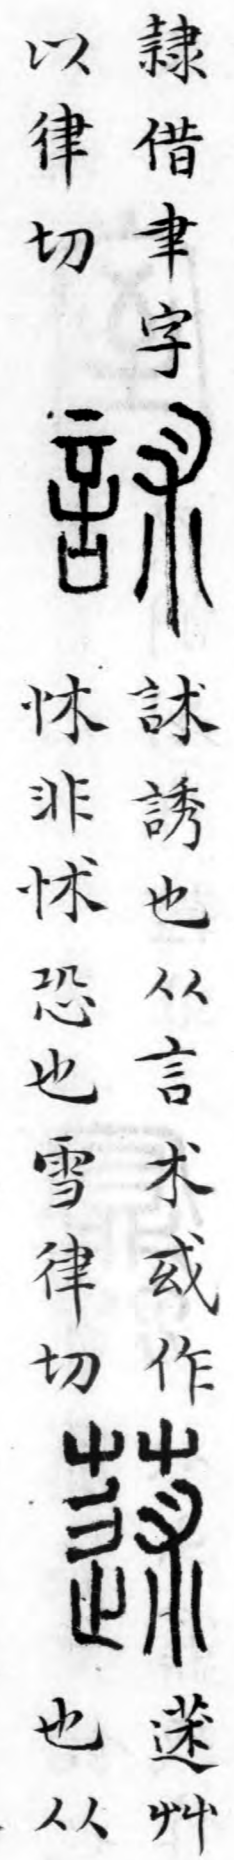 隸借聿字
以律切
訹
訹誘也从言朮或作
怵非怵恐也雪律切
蒁
蒁艸
也从